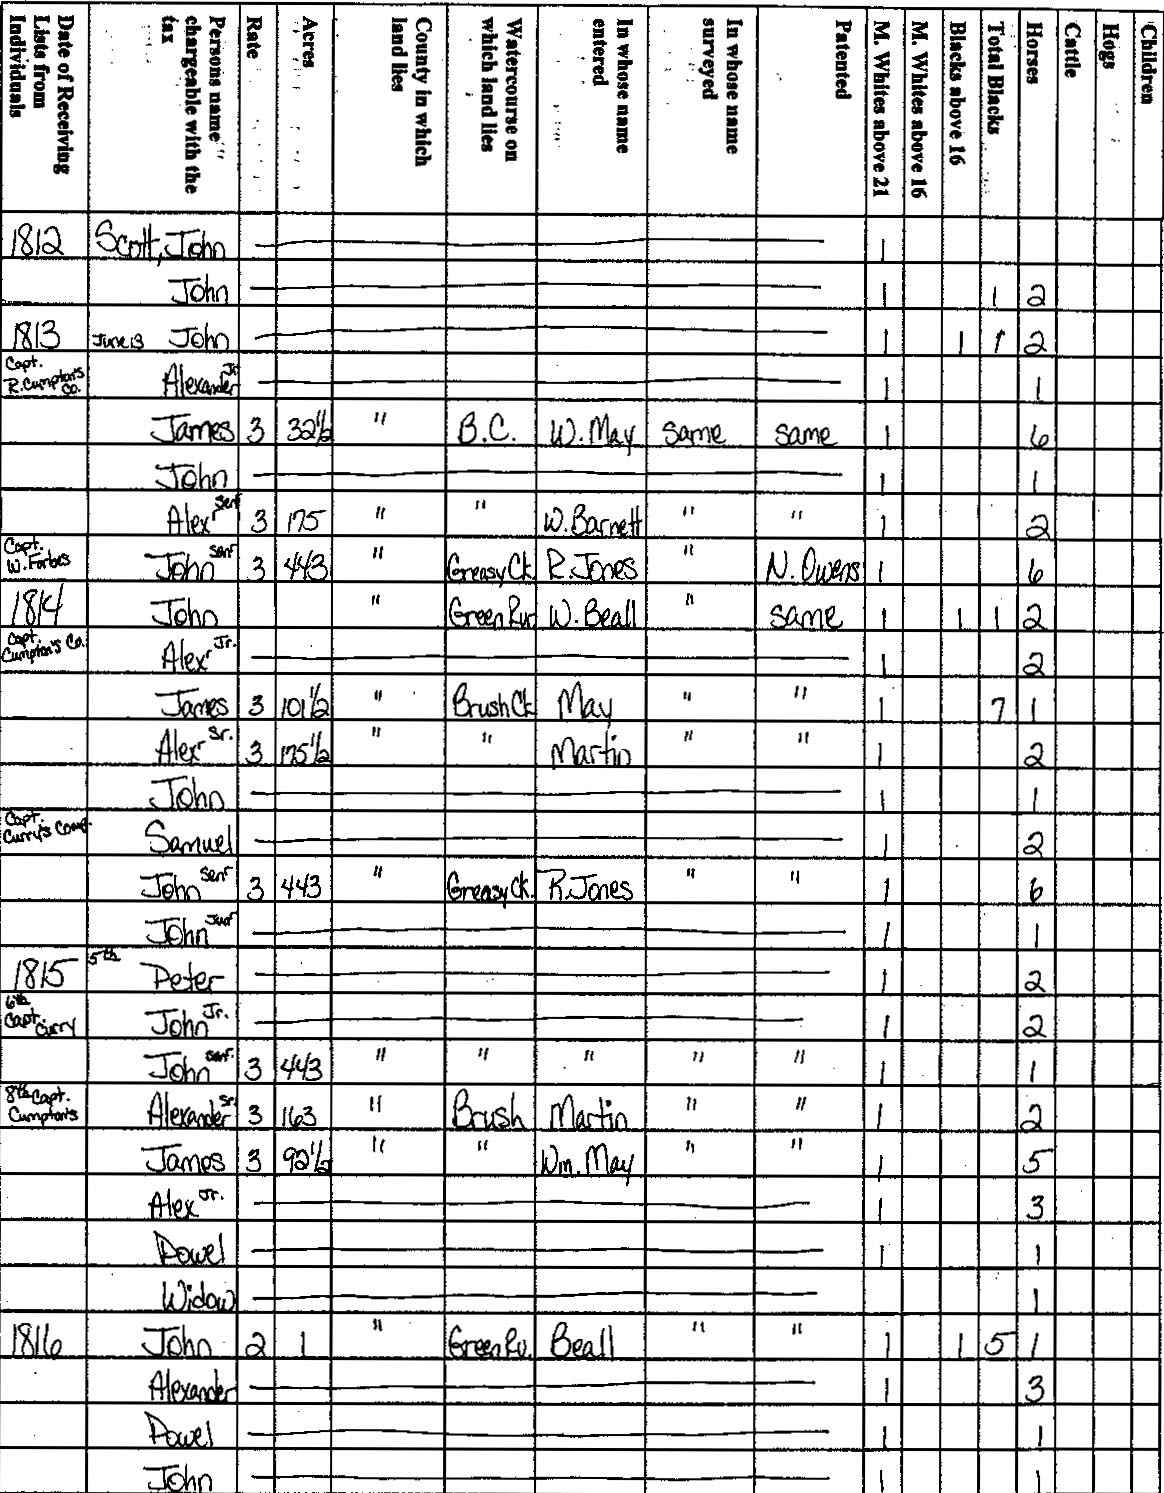 Date of Receiving Lists from Individuals | Persons name chargeable with the tax | Rate | Acres | County in which land lies | Watercourse on which land lies | In whose name entered | In whose name surveyed | Patented | M. Whites above 21 | M. Whites above 16 | Blacks above 16 | Total Blacks | Horses | Cattle | Hogs | Children
1812 Scott, John 1
John 1 1 2
1813 June 13 John 1 1 1 2
Capt. R. Cumpton's Co. Alexander Jr 1 1
James 3 32½ " B.C. W. May same same 1 6
John 1 1
Alexr Senr 3 175 " " W. Barnett " " 1 2
Capt. W. Forbes John Senr 3 443 " Greasy Ck. R. Jones " N. Owens 1 6
1814 John " Green Rvr W. Beall " same 1 1 1 2
Capt. Cumpton's Co. Alexr Jr. 1 2
James 3 101½ " Brush Ck May " " 1 7 1
Alexr Sr. 3 175½ " " Martin " " 1 2
John 1 1
Capt. Curry's Comp. Samuel 1 2
John Senr 3 443 " Greasy Ck. R. Jones " " 1 6
John Junr 1 1
1815 5th Peter 1 2
6th Capt. Curry John Jr. 1 2
John Senr. 3 443 " " " " " 1 1
8th Capt. Cumpton's Alexander Sr. 3 163 " Brush Martin " " 1 2
James 3 92½ " " Wm. May " " 1 5
Alex Jr. 1 3
Powel 1 1
Widow 1
1816 John 2 1 " Green Rv. Beall " " 1 1 5 1
Alexander 1 3
Powel 1 1
John 1 1